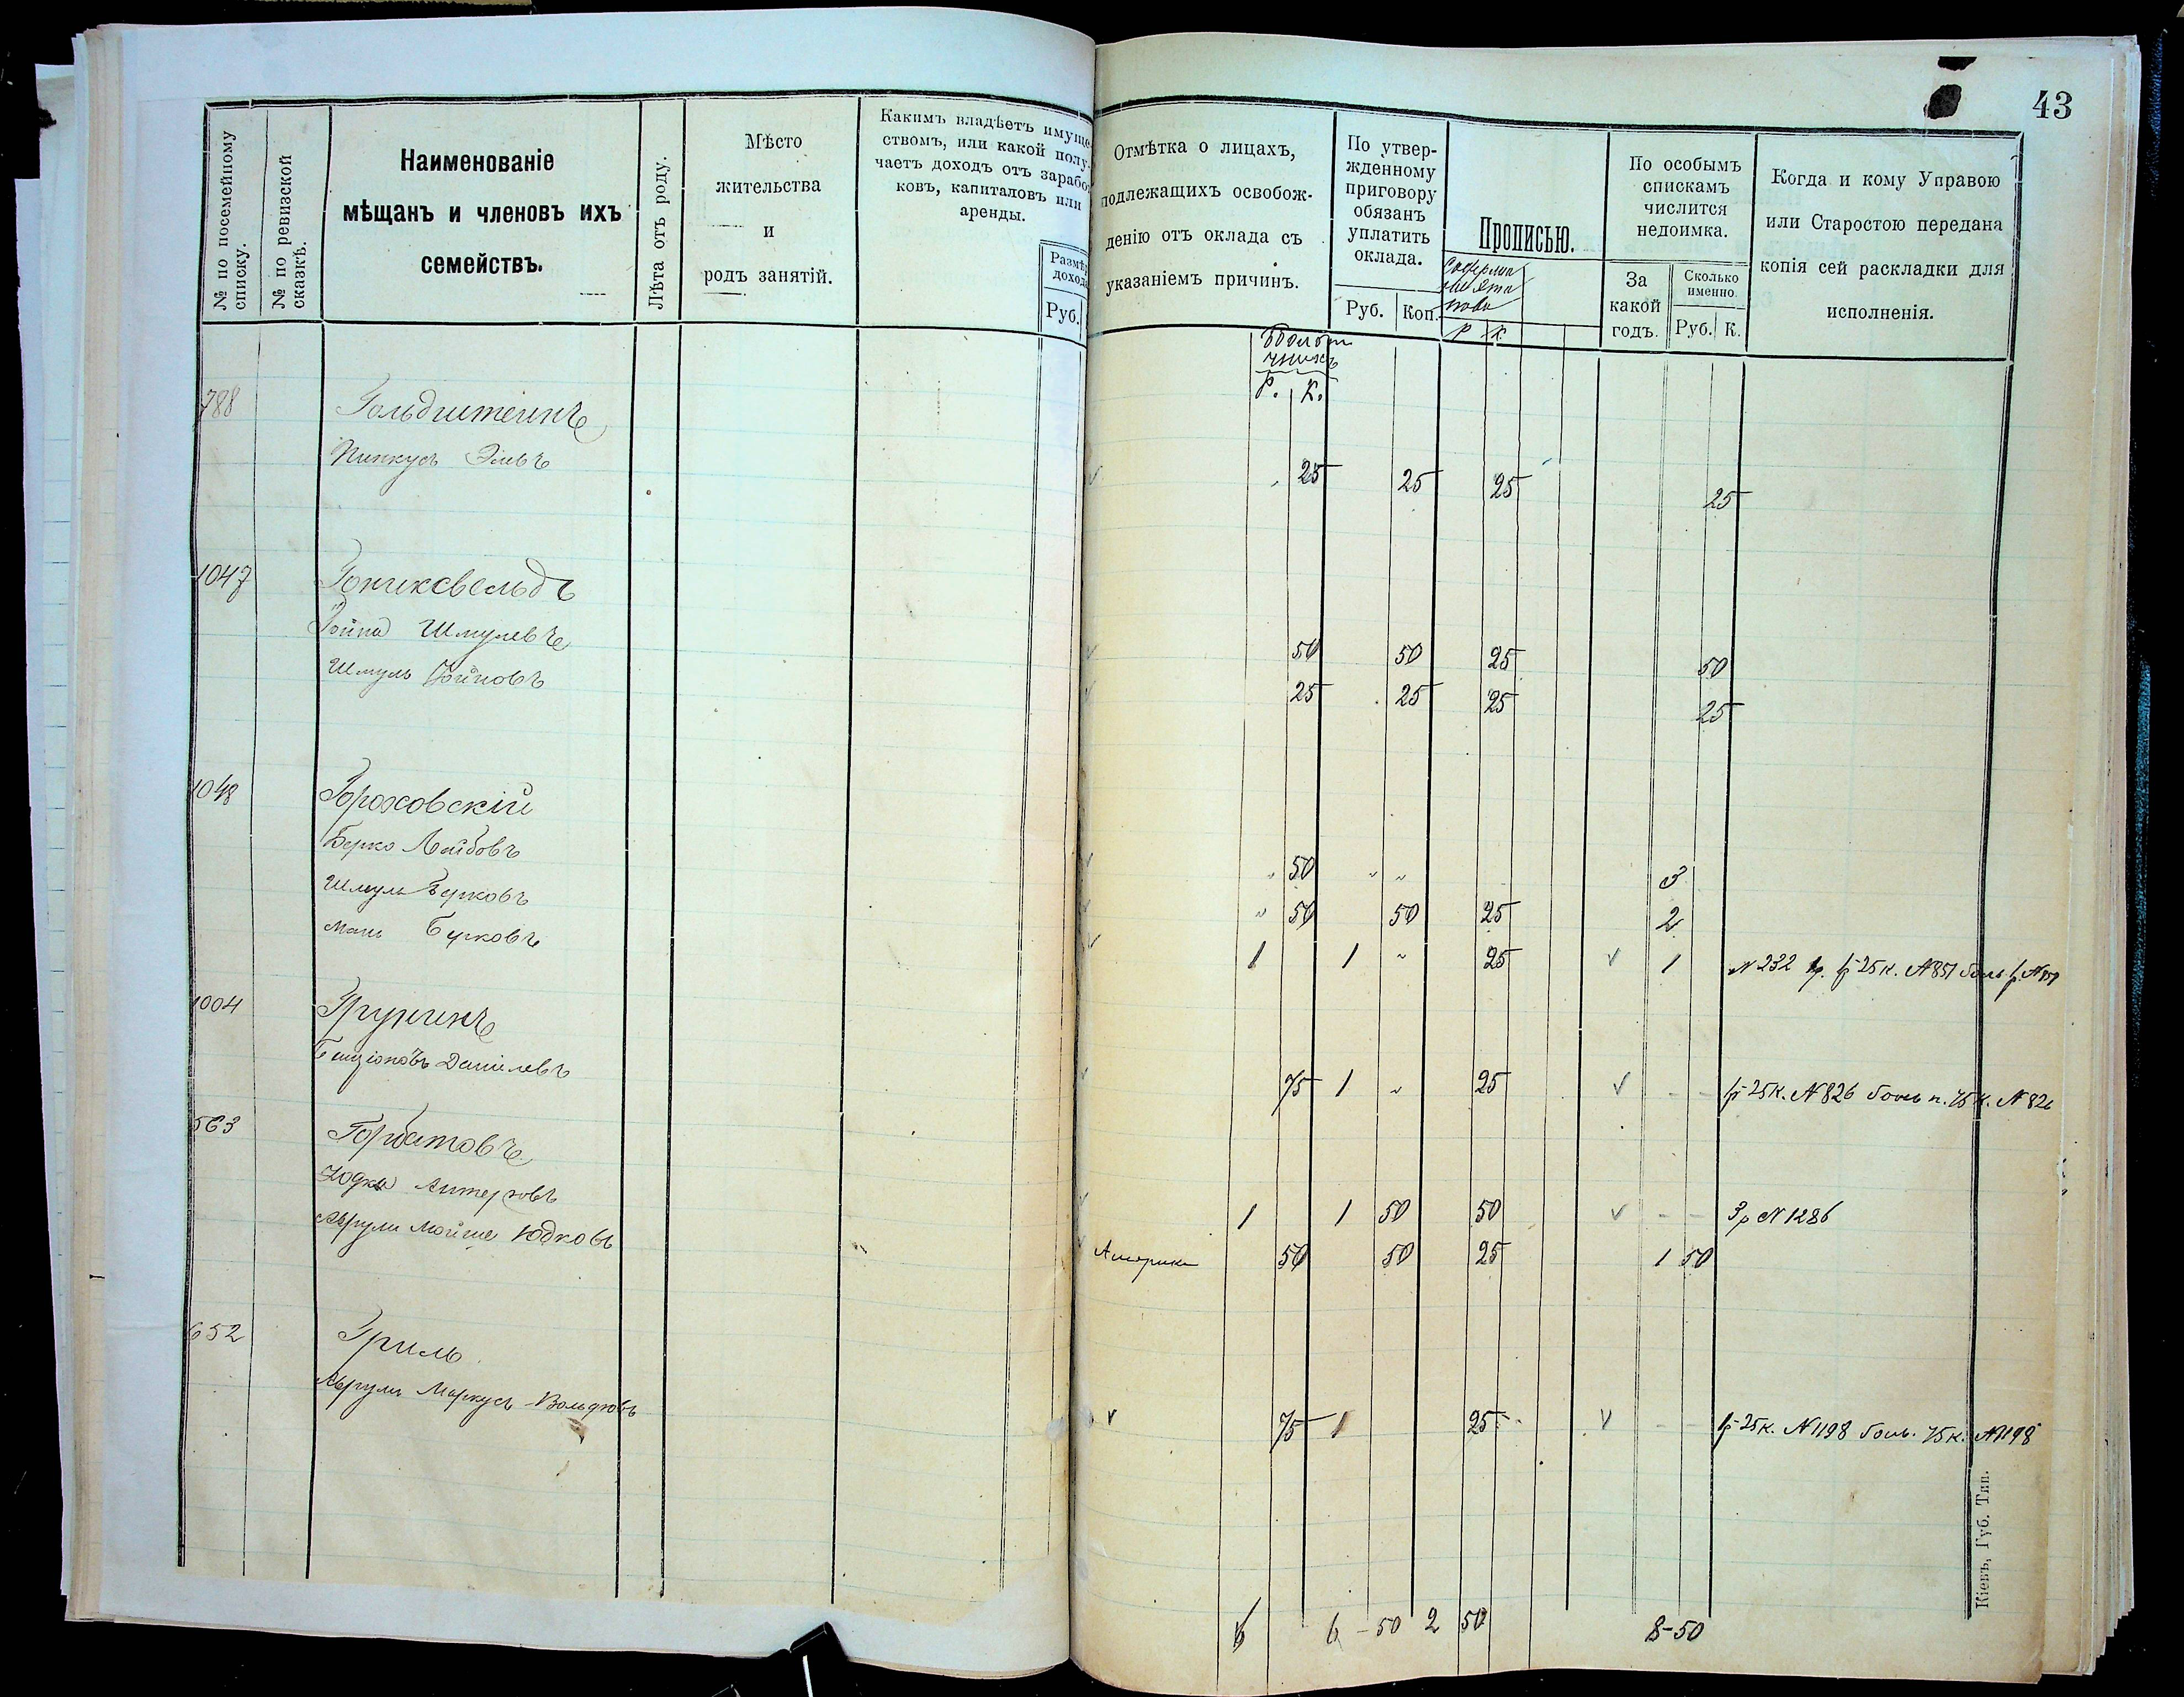 43
№ по посемейному списку.
№ по ревизской сказкѣ.
Наименованіе
мѣщанъ и членовъ ихъ
семействъ.
Лѣта отъ роду.
Мѣсто
жительства
и
родъ занятій.
Какимъ владѣетъ имуще-
ствомъ, или какой полу-
чаетъ доходъ отъ заработ-
ковъ, капиталовъ или
аренды.
Размѣръ
дохода
Руб.
Отмѣтка о лицахъ,
подлежащихъ освобож-
денію отъ оклада съ
указаніемъ причинъ.
По утвер-
жденному
приговору
обязанъ
уплатить
оклада.
Руб. Коп.
Прописью.
Р К.
По особымъ
спискамъ
числится
недоимка.
За
какой
годъ.
Сколько
именно.
Руб. К.
Когда и кому Управою
или Старостою передана
копія сей раскладки для
исполненія.
Р. К.
788 Гольдштейнъ
Пинкусъ Элевъ 25 25 25 25
1047 Гониксвельдъ
Хойна Шмулевъ 50 50 25 50
Шмуль Хойновъ 25 25 25 25
1048 Гороховскій
Берко Лейбовъ " 50 " " 3
Шмуль Берковъ " 50 50 25 2
Мань Берковъ 1 1 " 25 v 1 N 232 1р 25 к. N 851
1004 Грунинъ
Бенціонъ Даніилевъ 75 1 " 25 v - - 1р 25к. N 826 боль н. 75 к. N 826
563 Горбатовъ
Юдка 1 1 50 50 v - - 3р N 1286
Аврумъ Мойше Юдковъ Америка 50 50 25 1 50
652 Гриль
Аврумъ Маркусъ Вольфовъ v 75 1 25 v - - 1р 25к. N 1198 боль. 75 к. N 1198
6 6 - 50 2 50 8-50
Кіевъ, Губ. Тип.